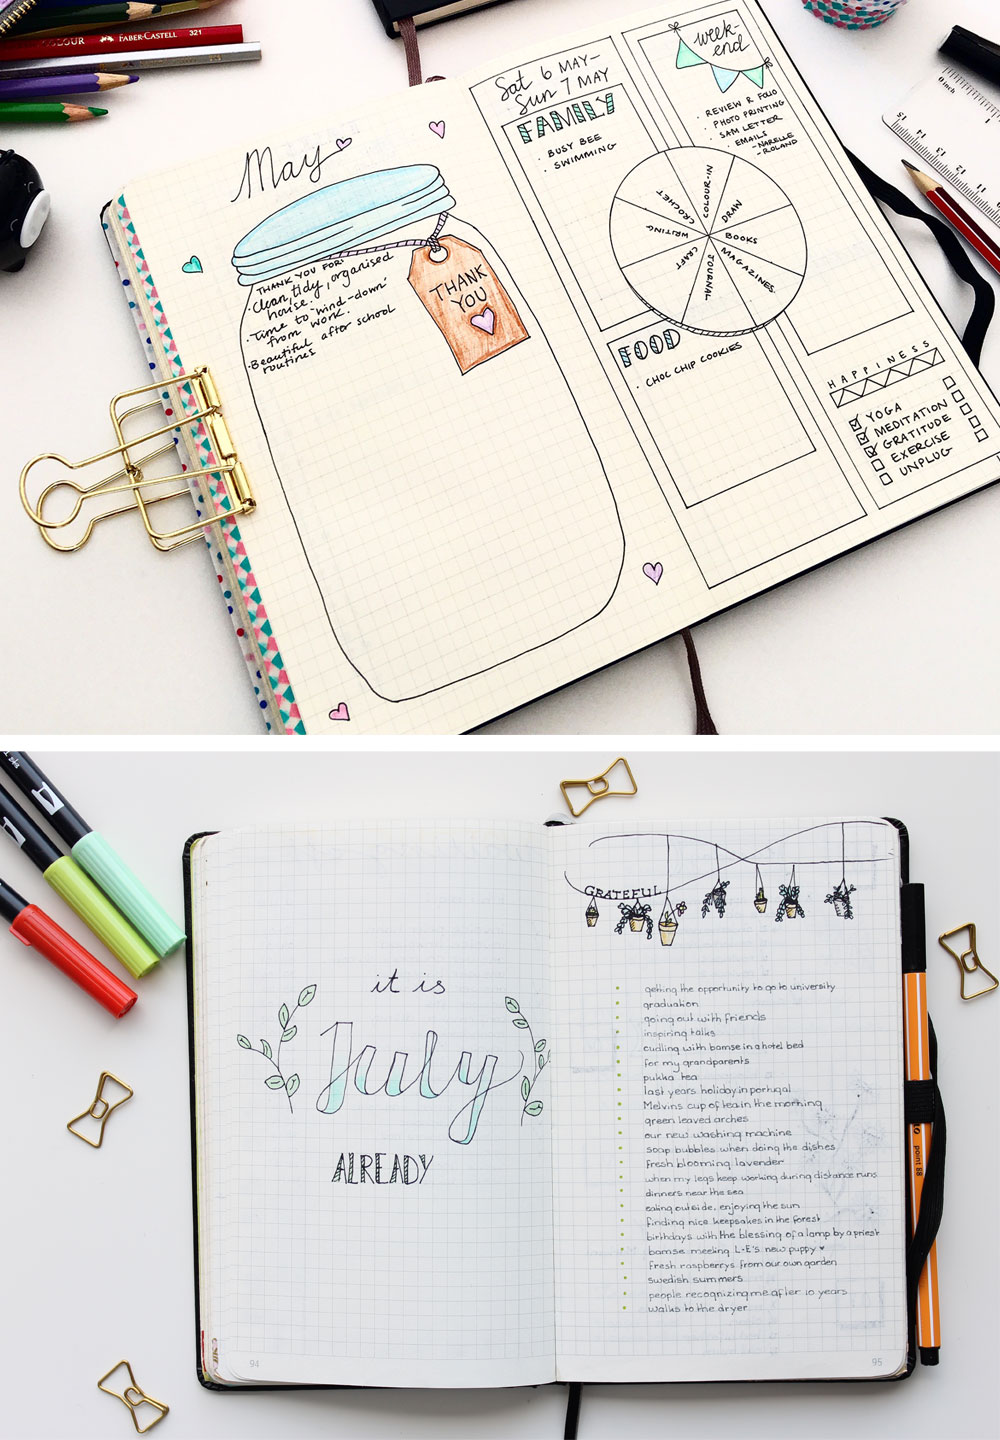 FABER-CASTELL 321
May
THANK YOU FOR:
· Clean, tidy, organised
house.
· Time to 'wind-down'
from work.
· Beautiful after school
routines
THANK
YOU
Sat 6 MAY-
Sun 7 MAY
FAMILY
· BUSY BEE
· SWIMMING
week-
end
· REVIEW R FOLIO
· PHOTO PRINTING
· SAM LETTER
· EMAILS
- NARELLE
- ROLAND
COLOUR-IN
DRAW
BOOKS
MAGAZINES
JOURNAL
CRAFT
WRITING
CROCHET
FOOD
· CHOC CHIP COOKIES
HAPPINESS
YOGA
MEDITATION
GRATITUDE
EXERCISE
UNPLUG
0 inch
15
14
13
12
11
it is
July
ALREADY
94
GRATEFUL
getting the opportunity to go to university
graduation
going out with friends
inspiring talks
cudling with bamse in a hotel bed
for my grandparents
pukka tea
last years holiday in portugal
Melvins cup of tea in the morning
green leaved arches
our new washing machine
soap bubbles when doing the dishes
fresh blooming lavender
when my legs keep working during distance runs
dinners near the sea
eating outside, enjoying the sun
finding nice keepsakes in the forest
birthdays with the blessing of a lamp by a priest
bamse meeting L+E's new puppy ♥
fresh raspberrys from our own garden
swedish summers
people recognizing me after 10 years
walks to the dryer
95
point 88